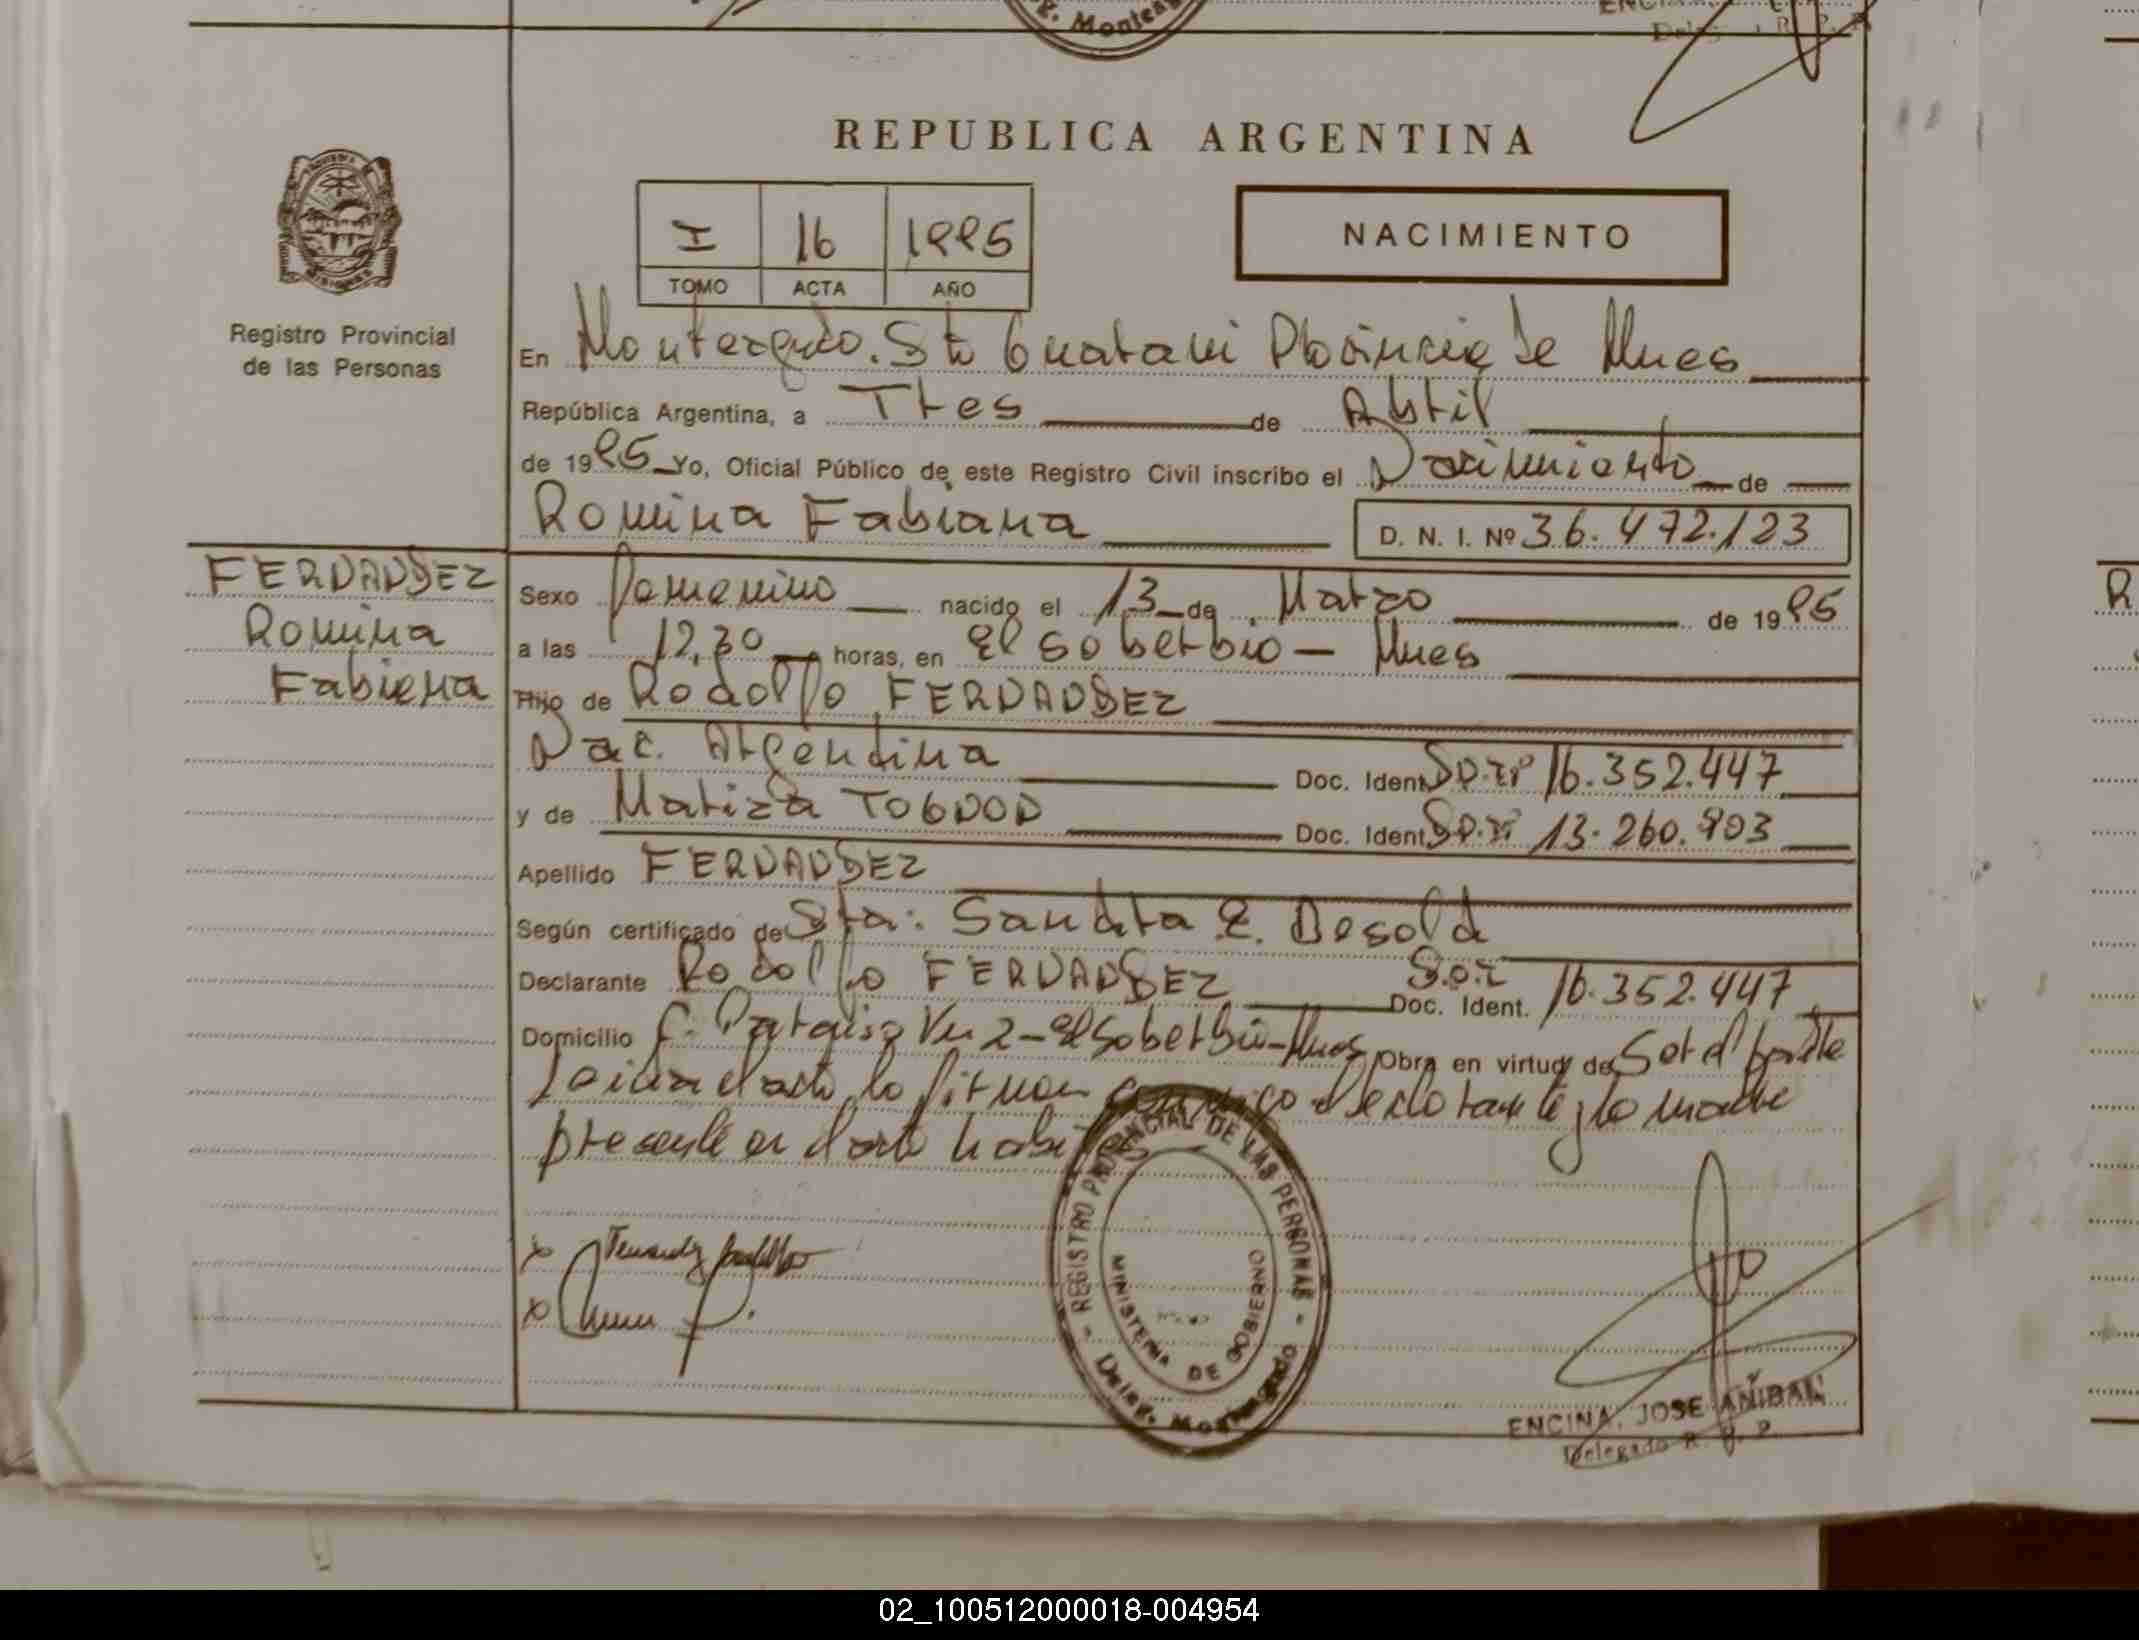 g. Monteag
REPUBLICA ARGENTINA
I 16 1995
TOMO ACTA AÑO
NACIMIENTO
Registro Provincial
de las Personas
En Monteagudo. Sto Guarani Provincia de Mnes
República Argentina, a Tres de Abril
de 1995 Yo, Oficial Público de este Registro Civil inscribo el Nacimiento de
Romina Fabiana D. N. I. Nº 36.472.123
FERNANDEZ
Romina
Fabiana
Sexo Femenino nacido el 13 de Marzo de 1995
a las 12,30 horas, en El Soberbio - Mnes
Hijo de Rodolfo FERNANDEZ
Nac. Argentina Doc. Ident. 16.352.447
y de Mariza TOGNON Doc. Ident. 13.260.903
Apellido FERNANDEZ
Según certificado de Sra: Sandra E. Desold
Declarante Rodolfo FERNANDEZ Doc. Ident. 16.352.447
Domicilio C. Paraiso Km 2 - El Soberbio - Mnes Obra en virtud de Ser el padre
Leida el acta la firman conmigo el declarante y la madre
presente en el acto
REGISTRO PROVINCIAL DE LAS PERSONAS
MINISTERIO DE GOBIERNO
Deleg. Monteagudo
ENCINA, JOSE ANIBAL
Delegado R. P. P.
02_100512000018-004954